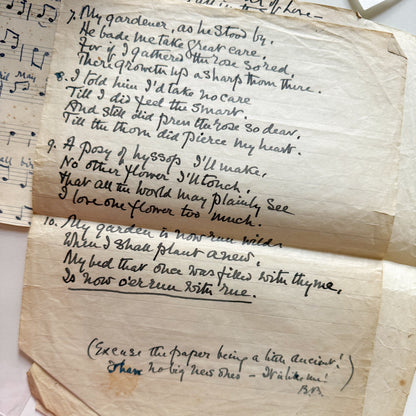 of here—
7. My gardener, as he stood by,
He bade me take great care,
For if I gathered the rose so red,
There groweth up a sharp thorn there.
8. I told him I'd take no care
Till I did feel the smart.
And still did press the rose so dear,
Till the thorn did pierce my heart.
9. A posy of hyssop I'll make,
No other flower I'll touch,
That all the world may plainly see
I love one flower too much.
10. My garden is now run wild,
When I shall plant anew,
My bed that once was filled with thyme,
Is now o'er run with rue.
(Excuse the paper being a little ancient!
I have no big new ones —
B.B.
April May